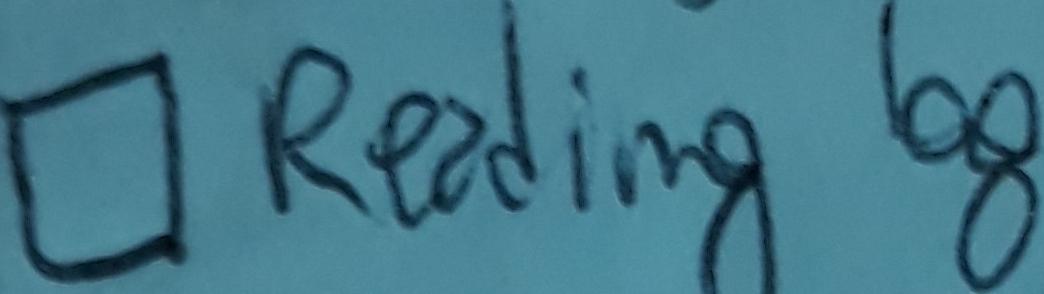 ☐ Reading log